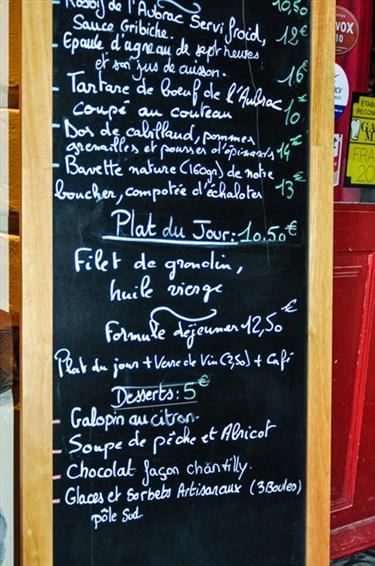 10,50
Rosbif de l'Aubrac Servi froid,
Sauce Gribiche. 12€
Epaule d'agneau de sept heures
et son jus de cuisson. 16€
Tartare de boeuf de l'Aubrac
coupé au couteau 10€
Dos de cabillaud, pommes
grenailles et pousses d'épinards 14€
Bavette nature (160gr) de notre
boucher, compotée d'échalotes 13€
Plat du Jour: 10.50€
Filet de grondin,
huile vierge
Formule déjeuner 12,50€
Plat du jour + Verre de Vin (3,50) + Café
Desserts: 5€
Galopin au citron.
Soupe de pêche et Abricot
Chocolat façon chantilly.
Glaces et Sorbets Artisanaux (3 Boules)
pôle Sud
VOX
10
FRA
20